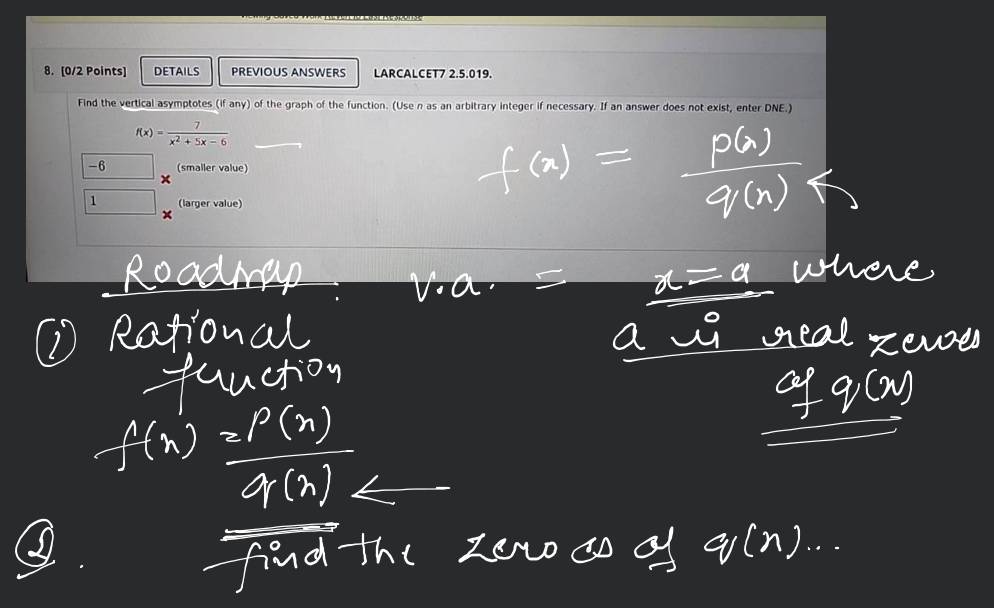 Viewing Saved Work Revert to Last Response
8. [0/2 Points] DETAILS PREVIOUS ANSWERS LARCALCET7 2.5.019.
Find the vertical asymptotes (if any) of the graph of the function. (Use n as an arbitrary integer if necessary. If an answer does not exist, enter DNE.)
f(x) = 7
x² + 5x − 6
−6 (smaller value)
1 (larger value)
f(x) = p(x)
q(x)
Roadmap: v.a. = x=a where
a is real zeroes
of q(x)
① Rational
function
f(x) = P(x)
q(x)
②. find the zeroes of q(x)...